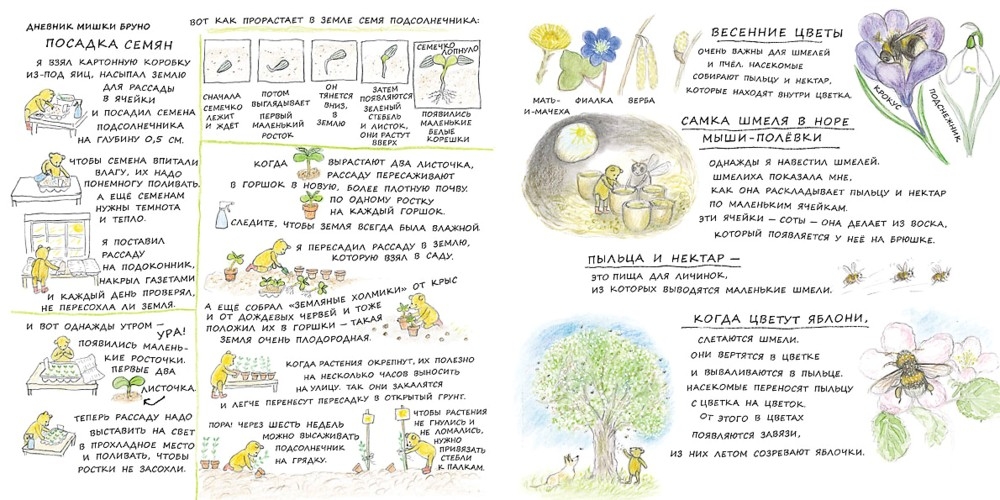 ДНЕВНИК МИШКИ БРУНО
ПОСАДКА СЕМЯН
Я ВЗЯЛ КАРТОННУЮ КОРОБКУ
ИЗ-ПОД ЯИЦ, НАСЫПАЛ ЗЕМЛЮ
ДЛЯ РАССАДЫ
В ЯЧЕЙКИ
И ПОСАДИЛ СЕМЕНА
ПОДСОЛНЕЧНИКА
НА ГЛУБИНУ 0,5 СМ.
ЧТОБЫ СЕМЕНА ВПИТАЛИ
ВЛАГУ, ИХ НАДО
ПОНЕМНОГУ ПОЛИВАТЬ.
А ЕЩЕ СЕМЕНАМ
НУЖНЫ ТЕМНОТА
И ТЕПЛО.
Я ПОСТАВИЛ
РАССАДУ
НА ПОДОКОННИК,
НАКРЫЛ ГАЗЕТАМИ
И КАЖДЫЙ ДЕНЬ ПРОВЕРЯЛ,
НЕ ПЕРЕСОХЛА ЛИ ЗЕМЛЯ.
И ВОТ ОДНАЖДЫ УТРОМ —
УРА!
ПОЯВИЛИСЬ МАЛЕНЬ-
КИЕ РОСТОЧКИ.
ПЕРВЫЕ ДВА
ЛИСТОЧКА.
ТЕПЕРЬ РАССАДУ НАДО
ВЫСТАВИТЬ НА СВЕТ
В ПРОХЛАДНОЕ МЕСТО
И ПОЛИВАТЬ, ЧТОБЫ
РОСТКИ НЕ ЗАСОХЛИ.
ВОТ КАК ПРОРАСТАЕТ В ЗЕМЛЕ СЕМЯ ПОДСОЛНЕЧНИКА:
СНАЧАЛА
СЕМЕЧКО
ЛЕЖИТ
И ЖДЁТ
ПОТОМ
ВЫГЛЯДЫВАЕТ
ПЕРВЫЙ
МАЛЕНЬКИЙ
РОСТОК
ОН
ТЯНЕТСЯ
ВНИЗ,
В
ЗЕМЛЮ
ЗАТЕМ
ПОЯВЛЯЮТСЯ
ЗЕЛЕНЫЙ
СТЕБЕЛЬ
И ЛИСТОК,
ОНИ РАСТУТ
ВВЕРХ
СЕМЕЧКО
ЛОПНУЛО
ПОЯВИЛИСЬ
МАЛЕНЬКИЕ
БЕЛЫЕ
КОРЕШКИ
КОГДА ВЫРАСТАЮТ ДВА ЛИСТОЧКА,
РАССАДУ ПЕРЕСАЖИВАЮТ
В ГОРШОК В НОВУЮ, БОЛЕЕ ПЛОТНУЮ ПОЧВУ.
ПО ОДНОМУ РОСТКУ
НА КАЖДЫЙ ГОРШОК.
СЛЕДИТЕ, ЧТОБЫ ЗЕМЛЯ ВСЕГДА БЫЛА ВЛАЖНОЙ.
Я ПЕРЕСАДИЛ РАССАДУ В ЗЕМЛЮ,
КОТОРУЮ ВЗЯЛ В САДУ.
А ЕЩЁ СОБРАЛ «ЗЕМЛЯНЫЕ ХОЛМИКИ» ОТ КРЫС
И ОТ ДОЖДЕВЫХ ЧЕРВЕЙ И ТОЖЕ
ПОЛОЖИЛ ИХ В ГОРШКИ — ТАКАЯ
ЗЕМЛЯ ОЧЕНЬ ПЛОДОРОДНАЯ.
КОГДА РАСТЕНИЯ ОКРЕПНУТ, ИХ ПОЛЕЗНО
НА НЕСКОЛЬКО ЧАСОВ ВЫНОСИТЬ
НА УЛИЦУ. ТАК ОНИ ЗАКАЛЯТСЯ
И ЛЕГЧЕ ПЕРЕНЕСУТ ПЕРЕСАДКУ В ОТКРЫТЫЙ ГРУНТ.
ПОРА! ЧЕРЕЗ ШЕСТЬ НЕДЕЛЬ
МОЖНО ВЫСАЖИВАТЬ
ПОДСОЛНЕЧНИК
НА ГРЯДКУ.
ЧТОБЫ РАСТЕНИЯ
НЕ ГНУЛИСЬ И
НЕ ЛОМАЛИСЬ,
НУЖНО
ПРИВЯЗАТЬ
СТЕБЛИ
К ПАЛКАМ.
МАТЬ-
И-МАЧЕХА
ФИАЛКА
ВЕРБА
ВЕСЕННИЕ ЦВЕТЫ
ОЧЕНЬ ВАЖНЫ ДЛЯ ШМЕЛЕЙ
И ПЧЕЛ. НАСЕКОМЫЕ
СОБИРАЮТ ПЫЛЬЦУ И НЕКТАР,
КОТОРЫЕ НАХОДЯТ ВНУТРИ ЦВЕТКА.
КРОКУС
ПОДСНЕЖНИК
САМКА ШМЕЛЯ В НОРЕ
МЫШИ-ПОЛЁВКИ
ОДНАЖДЫ Я НАВЕСТИЛ ШМЕЛЕЙ.
ШМЕЛИХА ПОКАЗАЛА МНЕ,
КАК ОНА РАСКЛАДЫВАЕТ ПЫЛЬЦУ И НЕКТАР
ПО МАЛЕНЬКИМ ЯЧЕЙКАМ.
ЭТИ ЯЧЕЙКИ — СОТЫ — ОНА ДЕЛАЕТ ИЗ ВОСКА,
КОТОРЫЙ ПОЯВЛЯЕТСЯ У НЕЁ НА БРЮШКЕ.
ПЫЛЬЦА И НЕКТАР —
ЭТО ПИЩА ДЛЯ ЛИЧИНОК,
ИЗ КОТОРЫХ ВЫВОДЯТСЯ МАЛЕНЬКИЕ ШМЕЛИ.
КОГДА ЦВЕТУТ ЯБЛОНИ,
СЛЕТАЮТСЯ ШМЕЛИ.
ОНИ ВЕРТЯТСЯ В ЦВЕТКЕ
И ВЫВАЛИВАЮТСЯ В ПЫЛЬЦЕ.
НАСЕКОМЫЕ ПЕРЕНОСЯТ ПЫЛЬЦУ
С ЦВЕТКА НА ЦВЕТОК.
ОТ ЭТОГО В ЦВЕТАХ
ПОЯВЛЯЮТСЯ ЗАВЯЗИ,
ИЗ НИХ ЛЕТОМ СОЗРЕВАЮТ ЯБЛОЧКИ.